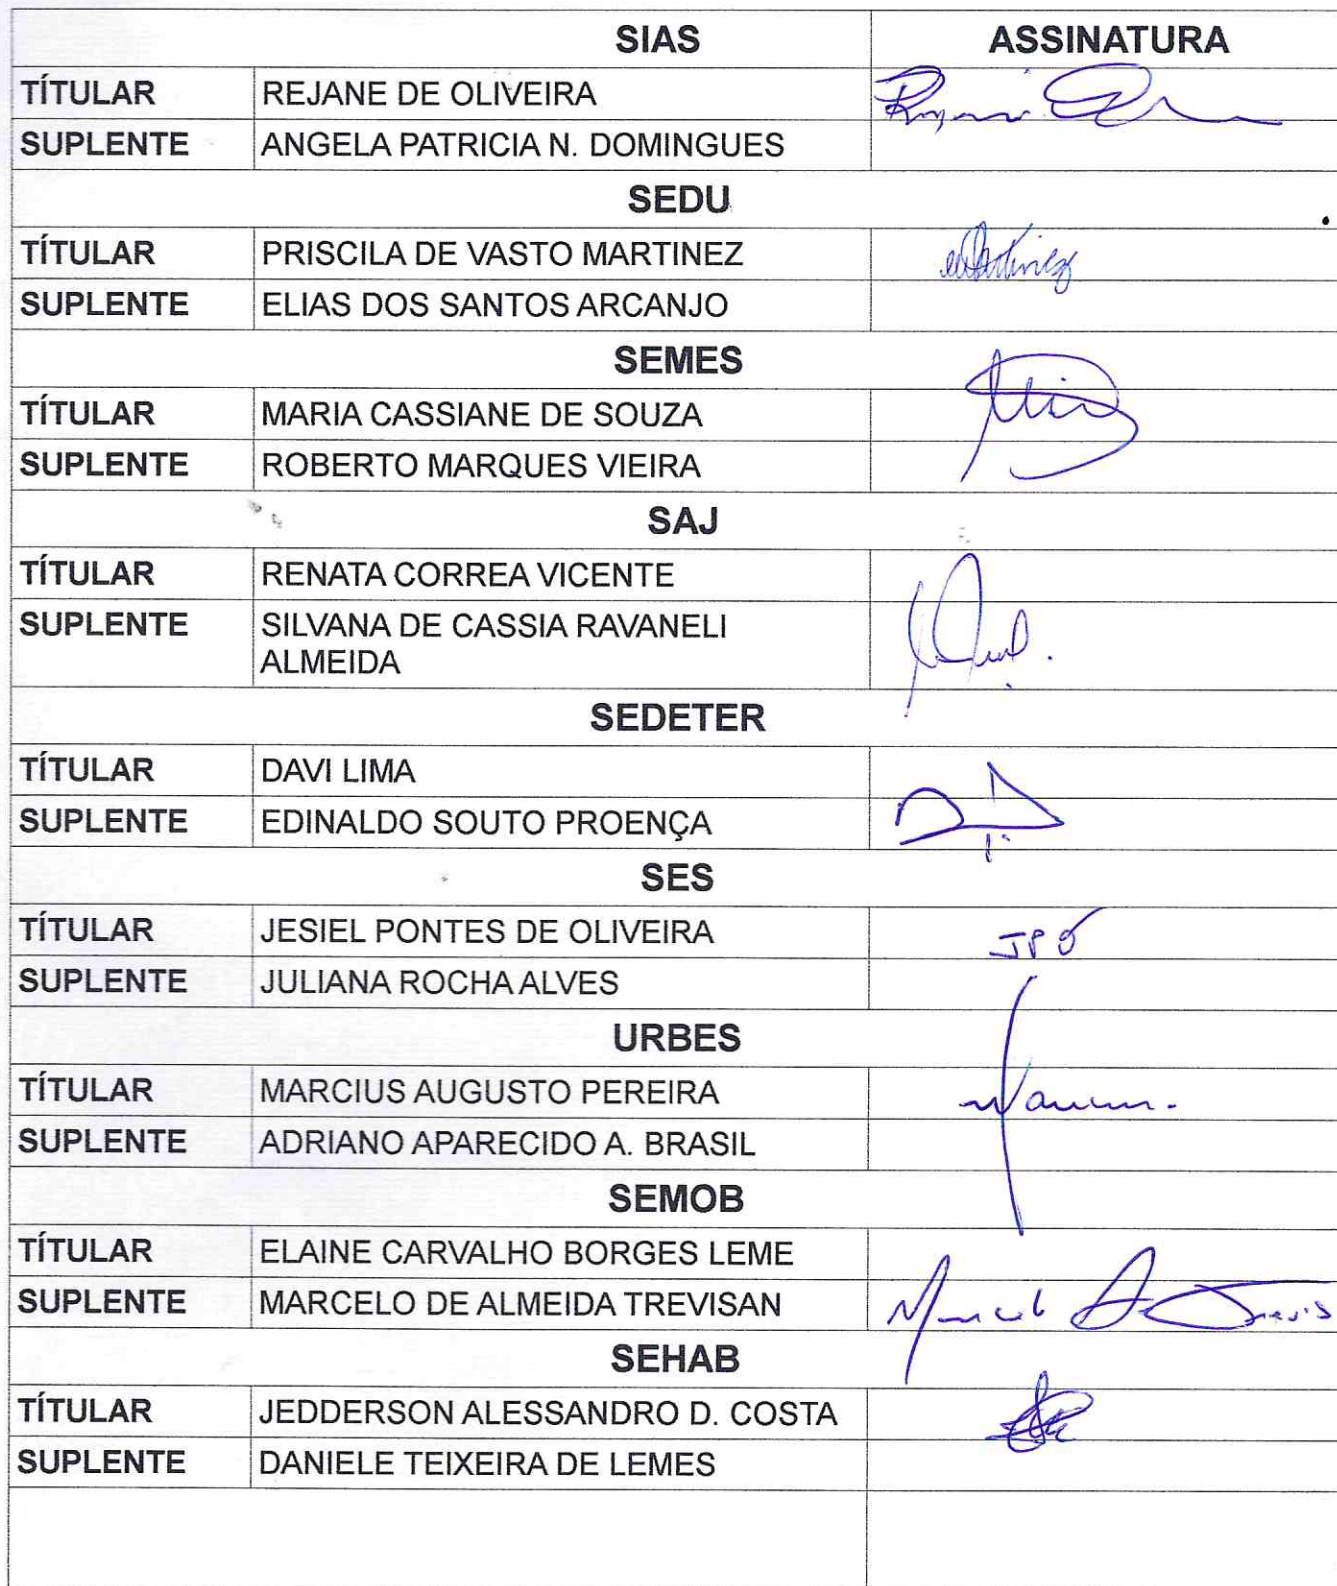 SIAS ASSINATURA
TÍTULAR REJANE DE OLIVEIRA
SUPLENTE ANGELA PATRICIA N. DOMINGUES
SEDU
TÍTULAR PRISCILA DE VASTO MARTINEZ
SUPLENTE ELIAS DOS SANTOS ARCANJO
SEMES
TÍTULAR MARIA CASSIANE DE SOUZA
SUPLENTE ROBERTO MARQUES VIEIRA
SAJ
TÍTULAR RENATA CORREA VICENTE
SUPLENTE SILVANA DE CASSIA RAVANELI
ALMEIDA
SEDETER
TÍTULAR DAVI LIMA
SUPLENTE EDINALDO SOUTO PROENÇA
SES
TÍTULAR JESIEL PONTES DE OLIVEIRA JPO
SUPLENTE JULIANA ROCHA ALVES
URBES
TÍTULAR MARCIUS AUGUSTO PEREIRA
SUPLENTE ADRIANO APARECIDO A. BRASIL
SEMOB
TÍTULAR ELAINE CARVALHO BORGES LEME
SUPLENTE MARCELO DE ALMEIDA TREVISAN
SEHAB
TÍTULAR JEDDERSON ALESSANDRO D. COSTA
SUPLENTE DANIELE TEIXEIRA DE LEMES